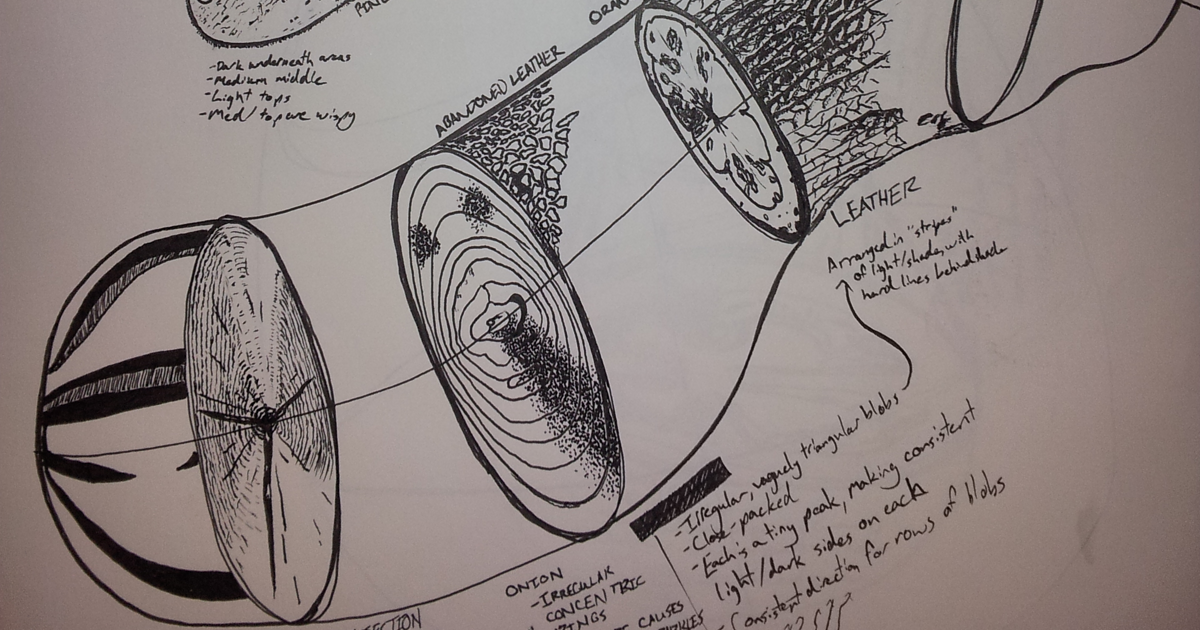 -Dark underneath areas
-Medium middle
-Light tops
-Med/top are wispy
ABANDONED LEATHER
LEATHER
Arranged in "stripes"
of light/shade, with
hard lines behind shade
-Irregular, vaguely triangular blobs
-Close-packed
-Each is a tiny peak, making consistent
light/dark sides on each
-Consistent direction for rows of blobs
ONION
-IRREGULAR
CONCENTRIC
RINGS
CAUSES